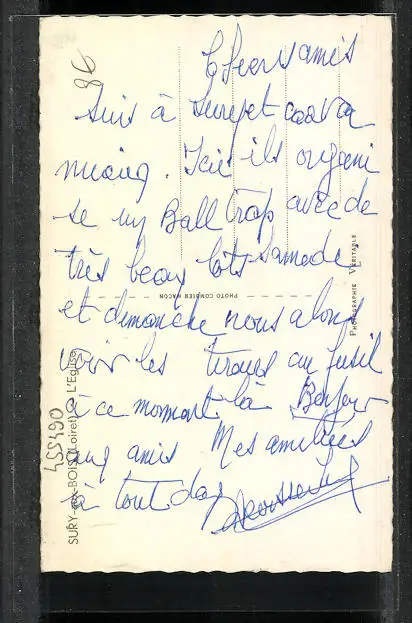 Chers amis
Suis à Sury et ça va
mieux. Ici ils organi
se un Ball trap avec de
très beaux lots samedi
et dimanche nous alons
voir les tireurs au fusil
à ce moment là Bonjour
aux amis Mes amitiées
à tout
86
455490
SURY-aux-BOIS (Loiret) - L'Eglise
PHOTO COMBIER MACON
PHOTOGRAPHIE VÉRITABLE